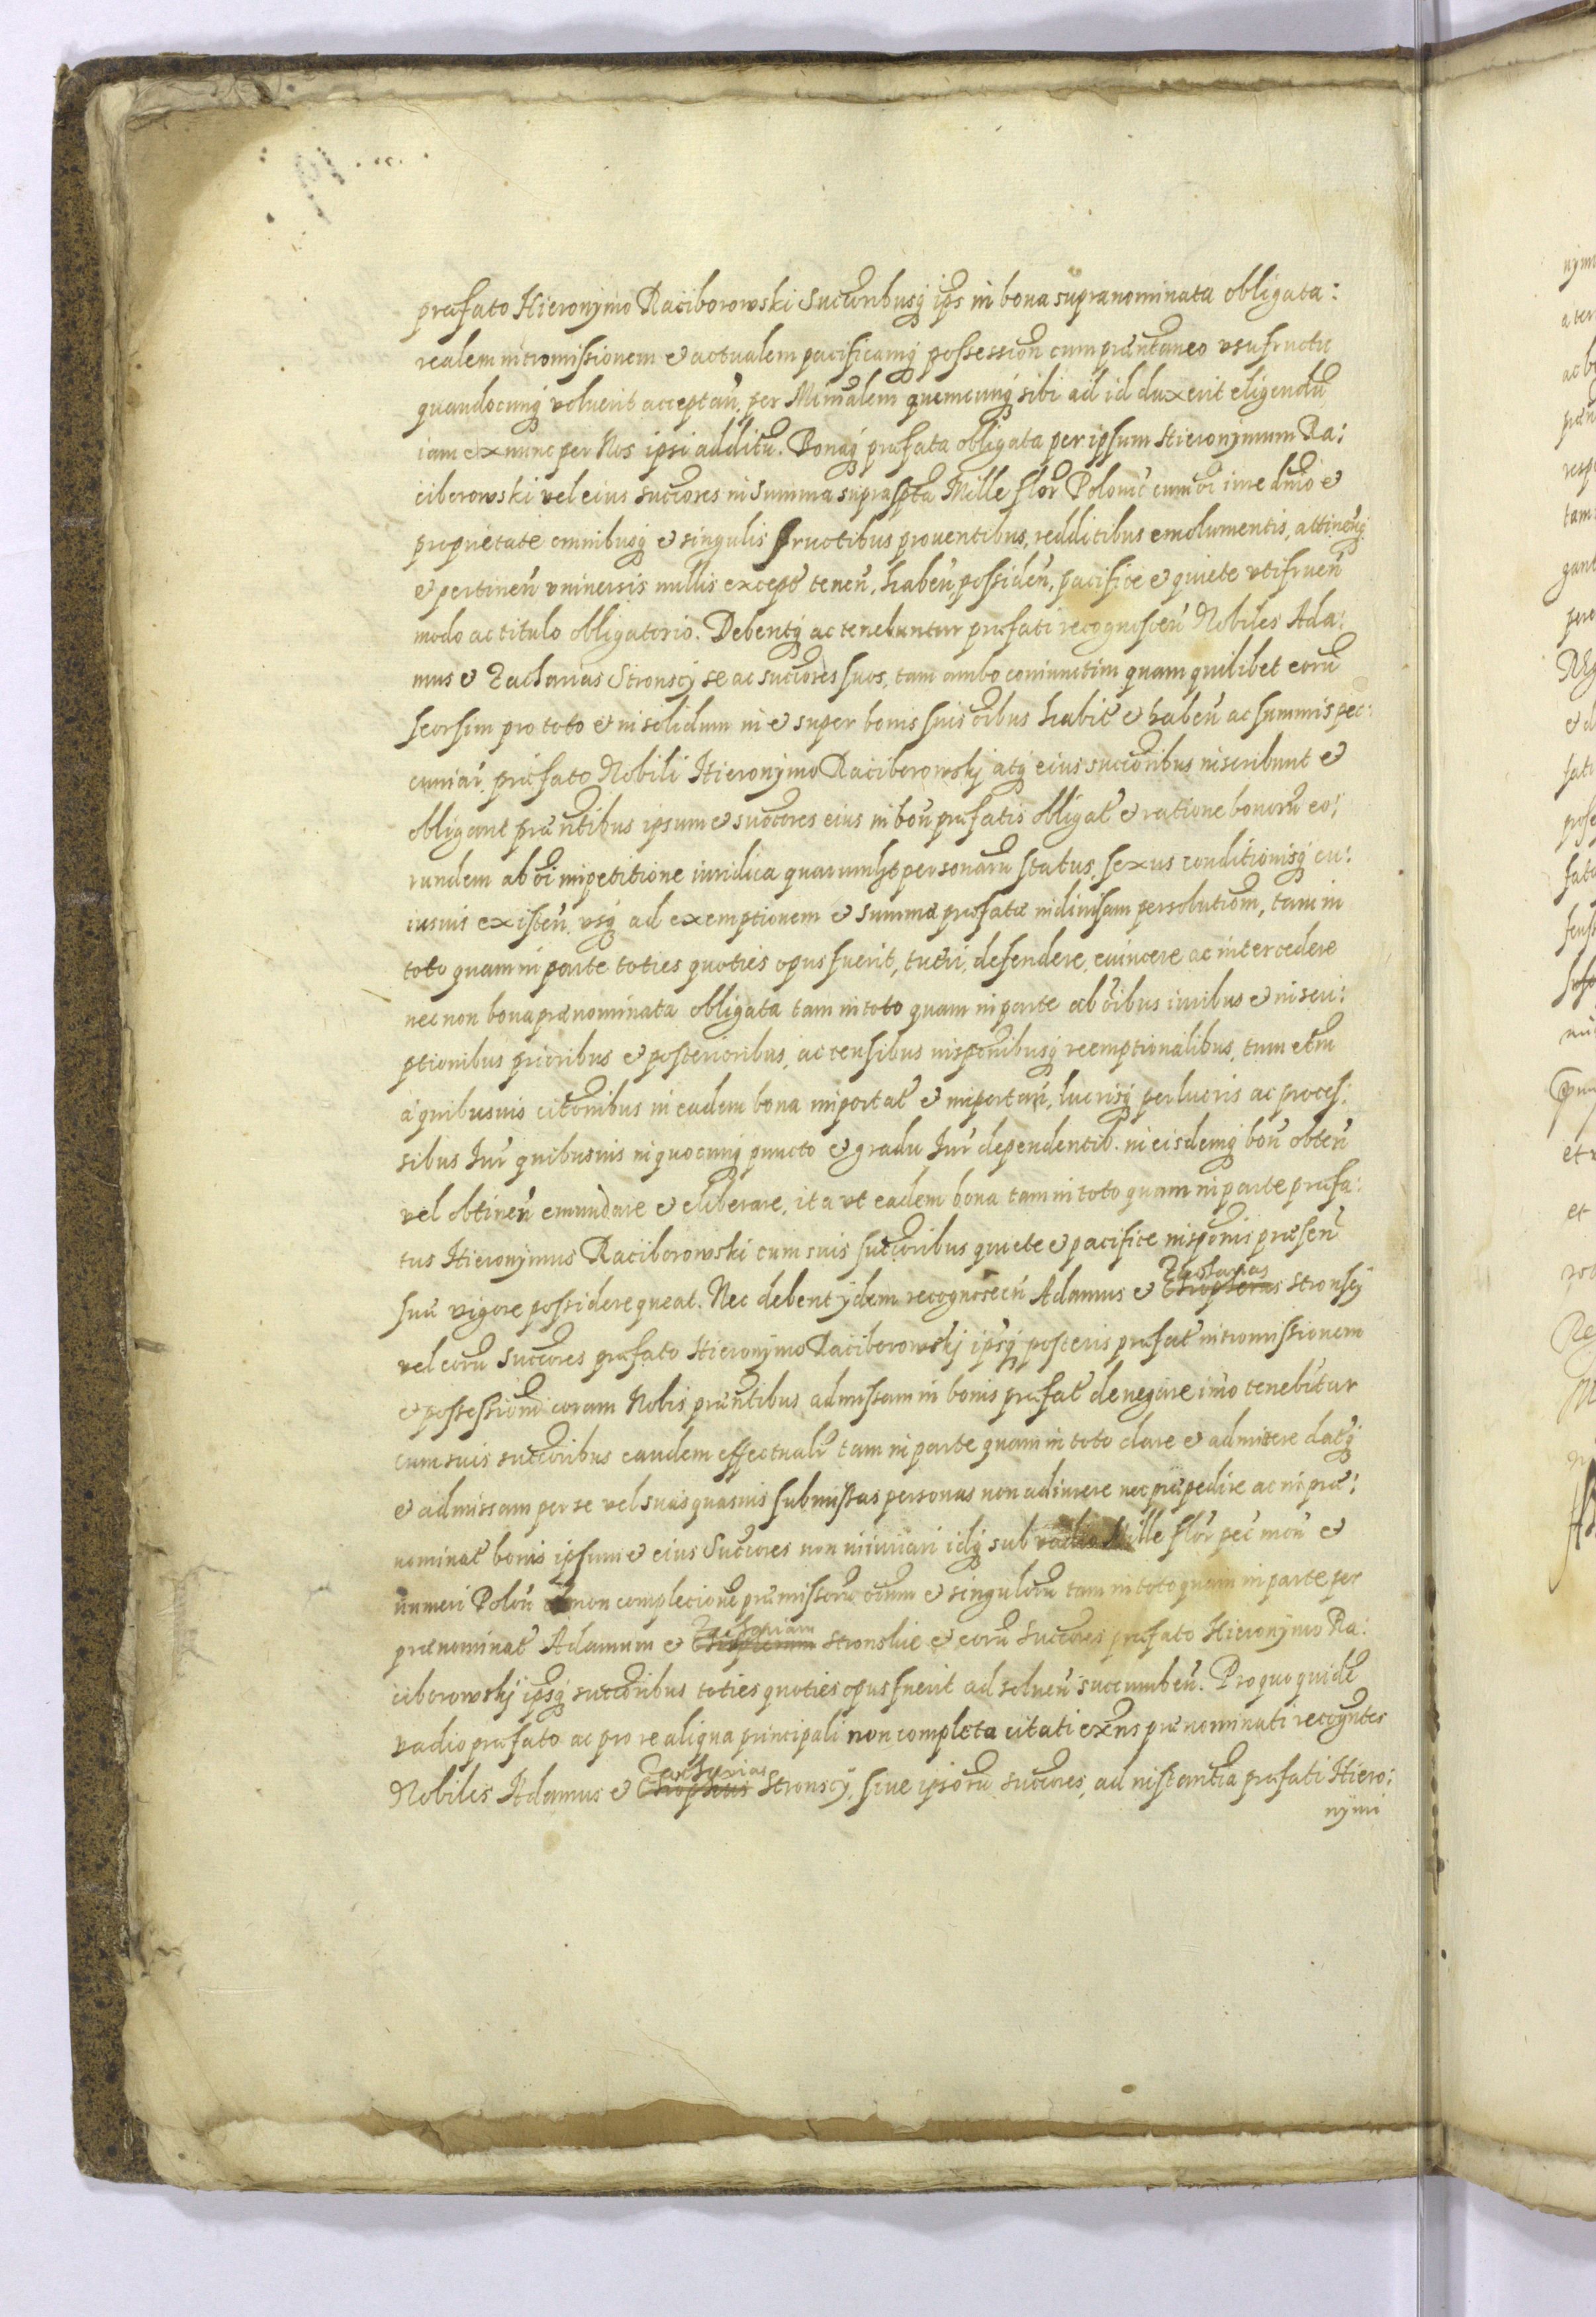 præfato Hieronymo Raciborowski Succoribusq ips in bona supranominata obligata:
realem intromissionem & actualem pacificamq possession cum præntaneo vsufructu
quandocunq voluerit acceptan. per Minralem quemcunq sibi ad id duxerit eligendu
iam ex nunc per Nos ipsi additu. Bonaq præfata obligata per ipsum Hieronymum Ra:
ciborowski vel eius succores in Summa suprascpta Mille flor Polonic cum oi iure dnio &
proprietate omnibusq & singulis fructibus prouentibus, redditibus emolumentis, attinenq
& pertinen vniuersis nullis except tenen, haben, possiden, pacifice & quiete vtifruen
modo ac titulo obligatorio. Debentq ac tenebuntur præfati recognoscen Nobiles Ada:
mus & Zacharias Stronscÿ se ac succores suos, tam ambo coniunctim quam quilibet eoru
seorsim pro toto & in solidum in & super bonis suis oibus habit & haben ac summis pec:
cuniar. præfato Nobili Hieronÿmo Raciborowskj atq eius succoribus inscribunt &
obligant præntibus ipsum & succores eius in bon præfatis obligat & ratione bonoru eo:
rundem ab oi impetitione iuridica quarumlbt personaru status, sexus conditionisq cu:
iusuis existen, vsq ad exemptionem & summæ præfatæ indiuisam persolutiom, tam in
toto quam in parte toties quoties opus fuerit, tueri, defendere, euincere ac intercedere
nec non bona prænominata obligata tam in toto quam in parte ab oibus iuribus & inscri:
ptionibus prioribus & posterioribus, ac censibus inspconibusq reemptionalibus, tum etm
a quibusuis citonibus in eadem bona importat & importan, lucrisq perlucris ac proces:
sibus Jur quibusuis in quocunq puncto & gradu Jur dependentib. in eisdemq bon obten
vel obtinen emundare & eliberare, ita vt eadem bona tam in toto quam in parte præfa:
tus Hieronymus Raciborowski cum suis succoribus quiete & pacifice insponis præsen
suu vigore possidere queat. Nec debent ÿdem recognoscen Adamus & Zacharias Stronscÿ
vel eoru Succores præfato Hieronÿmo Raciborowskj ipsq posteris præfat intromissionem
& possessionem coram Nobis præntibus admissam in bonis præfat denegare imo tenebitur
cum suis succoribus eandem effectualr tam in parte quam in toto dare & admitere datq
& admissam per se vel suas quasuis submissas personas non adimere nec præpedire ac in præ:
nominat bonis ipsum & eius Succores non iniuriari idq sub vadio Mille flor pec mon &
numeri Polon non complecione præmissoru oium & singuloru tam in toto quam in parte per
prænominat Adamum & Zachariam Stronskie & eoru succores præfato Hieronÿmo Ra:
ciborowskj ipsq succoribus toties quoties opus fuerit ad soluen succumben. Pro quo quide
vadio præfato ac pro re aliqua principali non completa citati exns prænominati recogntes
Nobiles Adamus & Zacharias Stronscÿ, siue ipsoru succores, ad instantia præfati Hiero:
nÿmi